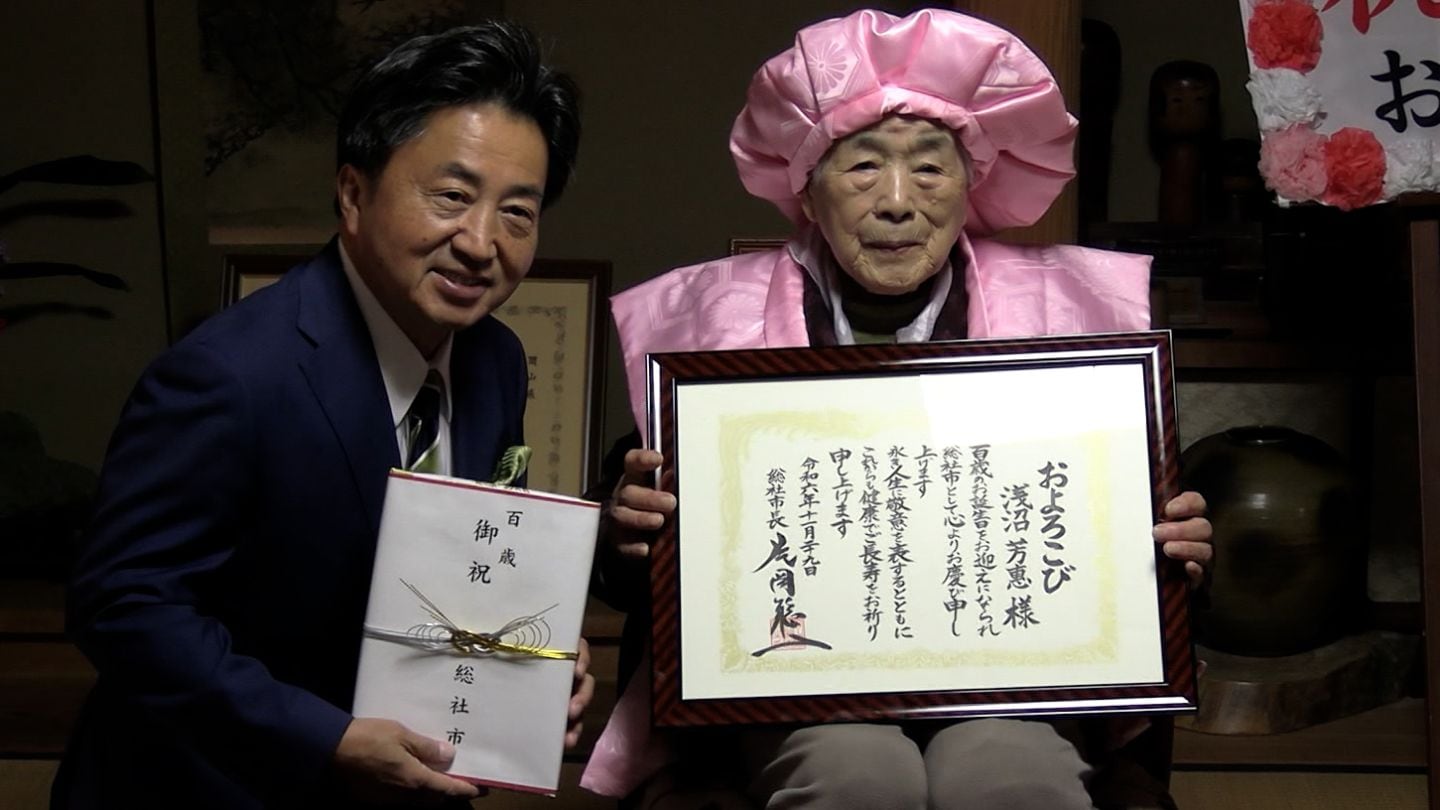 およろこび
浅沼 芳惠 様
百歳のお誕生日をお迎えになられ
総社市として心よりお慶び申し
上げます
永き人生に敬意を表するとともに
これからも健康でご長寿をお祈り
申し上げます
令和六年十一月二十九日
総社市長 片岡聡一
百歳
御祝
総社市
祝
お
岡山県